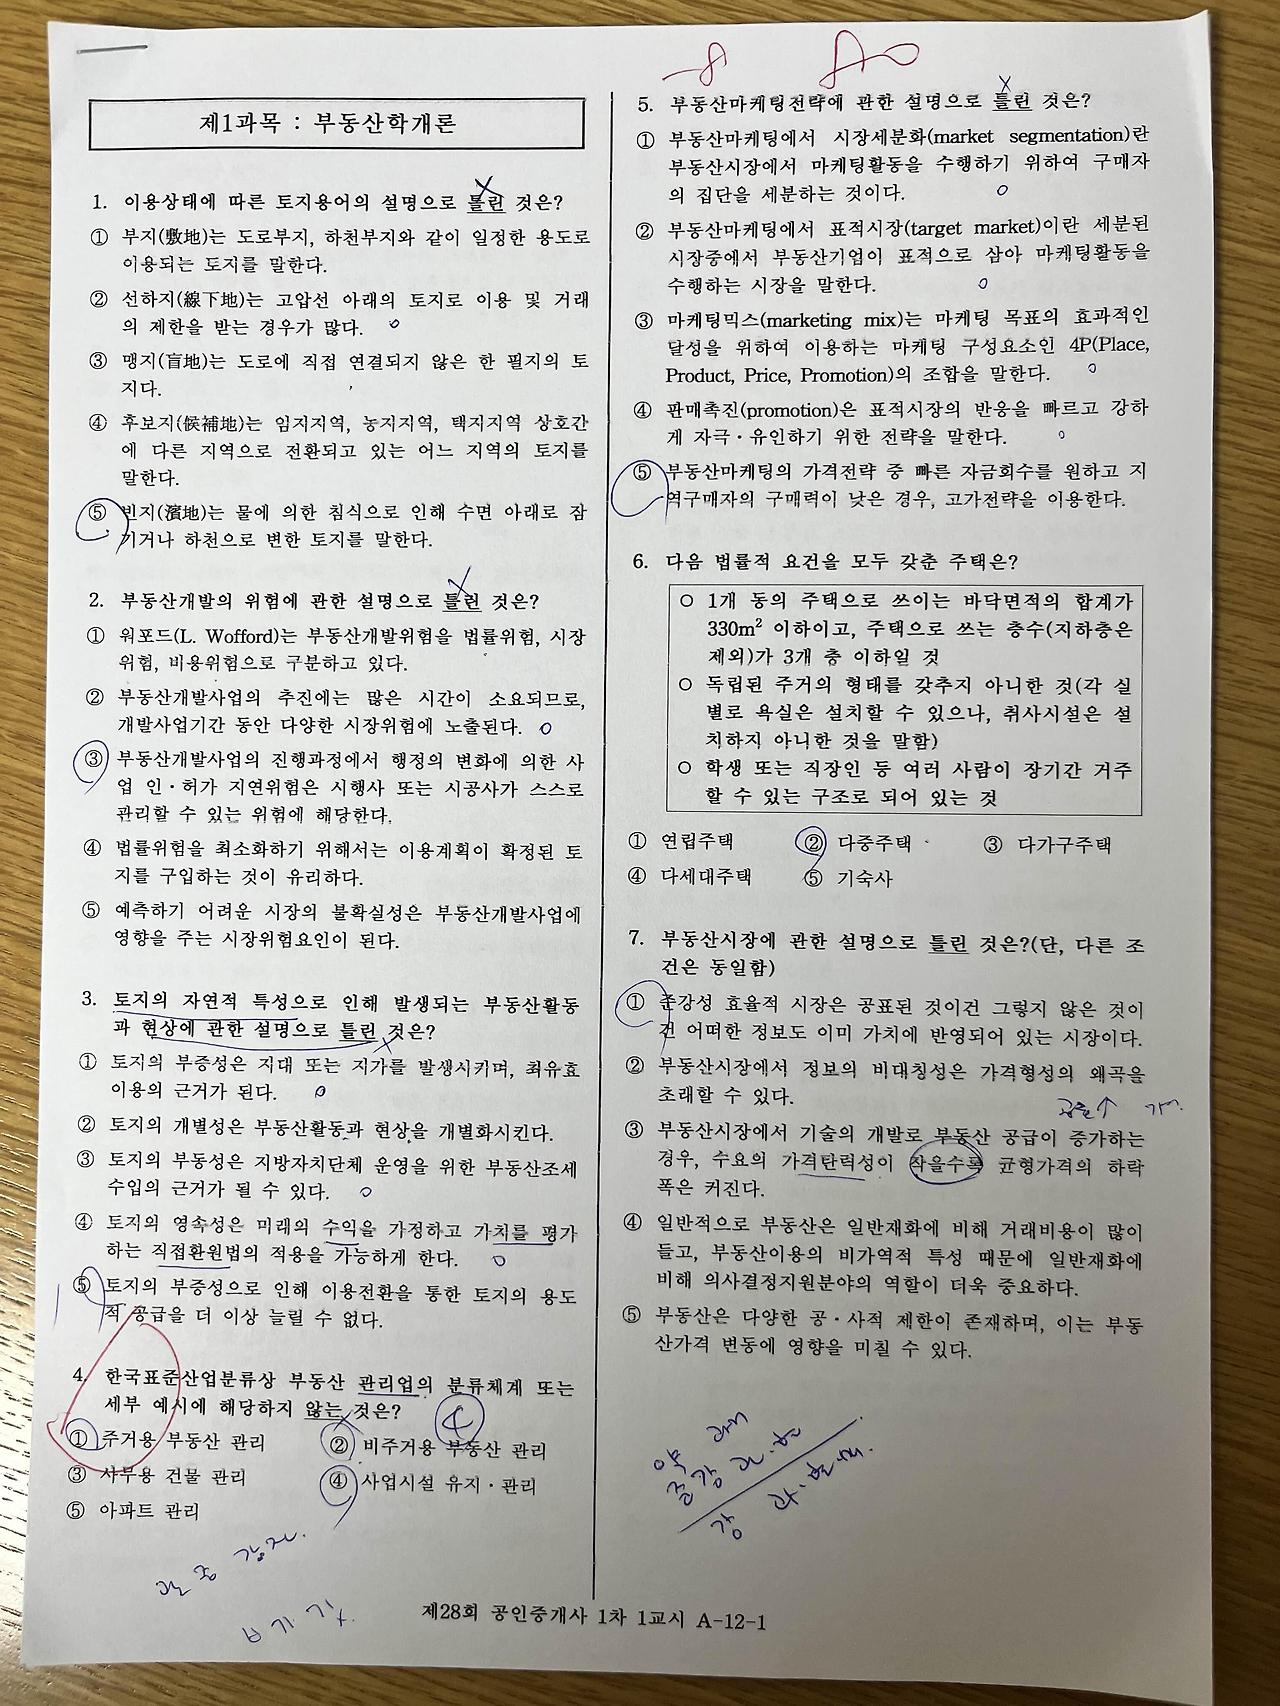 -8 80
제1과목 : 부동산학개론
1. 이용상태에 따른 토지용어의 설명으로 틀린 것은?
① 부지(敷地)는 도로부지, 하천부지와 같이 일정한 용도로
이용되는 토지를 말한다.
② 선하지(線下地)는 고압선 아래의 토지로 이용 및 거래
의 제한을 받는 경우가 많다.
③ 맹지(盲地)는 도로에 직접 연결되지 않은 한 필지의 토
지다.
④ 후보지(候補地)는 임지지역, 농지지역, 택지지역 상호간
에 다른 지역으로 전환되고 있는 어느 지역의 토지를
말한다.
⑤ 빈지(濱地)는 물에 의한 침식으로 인해 수면 아래로 잠
기거나 하천으로 변한 토지를 말한다.
2. 부동산개발의 위험에 관한 설명으로 틀린 것은?
① 워포드(L. Wofford)는 부동산개발위험을 법률위험, 시장
위험, 비용위험으로 구분하고 있다.
② 부동산개발사업의 추진에는 많은 시간이 소요되므로,
개발사업기간 동안 다양한 시장위험에 노출된다.
③ 부동산개발사업의 진행과정에서 행정의 변화에 의한 사
업 인·허가 지연위험은 시행사 또는 시공사가 스스로
관리할 수 있는 위험에 해당한다.
④ 법률위험을 최소화하기 위해서는 이용계획이 확정된 토
지를 구입하는 것이 유리하다.
⑤ 예측하기 어려운 시장의 불확실성은 부동산개발사업에
영향을 주는 시장위험요인이 된다.
3. 토지의 자연적 특성으로 인해 발생되는 부동산활동
과 현상에 관한 설명으로 틀린 것은?
① 토지의 부증성은 지대 또는 지가를 발생시키며, 최유효
이용의 근거가 된다.
② 토지의 개별성은 부동산활동과 현상을 개별화시킨다.
③ 토지의 부동성은 지방자치단체 운영을 위한 부동산조세
수입의 근거가 될 수 있다.
④ 토지의 영속성은 미래의 수익을 가정하고 가치를 평가
하는 직접환원법의 적용을 가능하게 한다.
⑤ 토지의 부증성으로 인해 이용전환을 통한 토지의 용도
적 공급을 더 이상 늘릴 수 없다.
4. 한국표준산업분류상 부동산 관리업의 분류체계 또는
세부 예시에 해당하지 않는 것은?
④
① 주거용 부동산 관리 ② 비주거용 부동산 관리
③ 사무용 건물 관리 ④ 사업시설 유지·관리
⑤ 아파트 관리
5. 부동산마케팅전략에 관한 설명으로 틀린 것은?
① 부동산마케팅에서 시장세분화(market segmentation)란
부동산시장에서 마케팅활동을 수행하기 위하여 구매자
의 집단을 세분하는 것이다.
② 부동산마케팅에서 표적시장(target market)이란 세분된
시장중에서 부동산기업이 표적으로 삼아 마케팅활동을
수행하는 시장을 말한다.
③ 마케팅믹스(marketing mix)는 마케팅 목표의 효과적인
달성을 위하여 이용하는 마케팅 구성요소인 4P(Place,
Product, Price, Promotion)의 조합을 말한다.
④ 판매촉진(promotion)은 표적시장의 반응을 빠르고 강하
게 자극·유인하기 위한 전략을 말한다.
⑤ 부동산마케팅의 가격전략 중 빠른 자금회수를 원하고 지
역구매자의 구매력이 낮은 경우, 고가전략을 이용한다.
6. 다음 법률적 요건을 모두 갖춘 주택은?
○ 1개 동의 주택으로 쓰이는 바닥면적의 합계가
330m² 이하이고, 주택으로 쓰는 층수(지하층은
제외)가 3개 층 이하일 것
○ 독립된 주거의 형태를 갖추지 아니한 것(각 실
별로 욕실은 설치할 수 있으나, 취사시설은 설
치하지 아니한 것을 말함)
○ 학생 또는 직장인 등 여러 사람이 장기간 거주
할 수 있는 구조로 되어 있는 것
① 연립주택 ② 다중주택 ③ 다가구주택
④ 다세대주택 ⑤ 기숙사
7. 부동산시장에 관한 설명으로 틀린 것은?(단, 다른 조
건은 동일함)
① 준강성 효율적 시장은 공표된 것이건 그렇지 않은 것이
건 어떠한 정보도 이미 가치에 반영되어 있는 시장이다.
② 부동산시장에서 정보의 비대칭성은 가격형성의 왜곡을
초래할 수 있다.
공급↑
③ 부동산시장에서 기술의 개발로 부동산 공급이 증가하는
경우, 수요의 가격탄력성이 작을수록 균형가격의 하락
폭은 커진다.
④ 일반적으로 부동산은 일반재화에 비해 거래비용이 많이
들고, 부동산이용의 비가역적 특성 때문에 일반재화에
비해 의사결정지원분야의 역할이 더욱 중요하다.
⑤ 부동산은 다양한 공·사적 제한이 존재하며, 이는 부동
산가격 변동에 영향을 미칠 수 있다.
제28회 공인중개사 1차 1교시 A-12-1